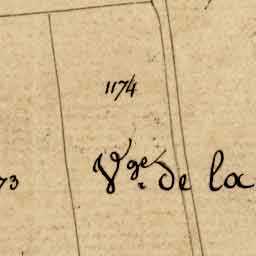 1174
73
Vge. de la